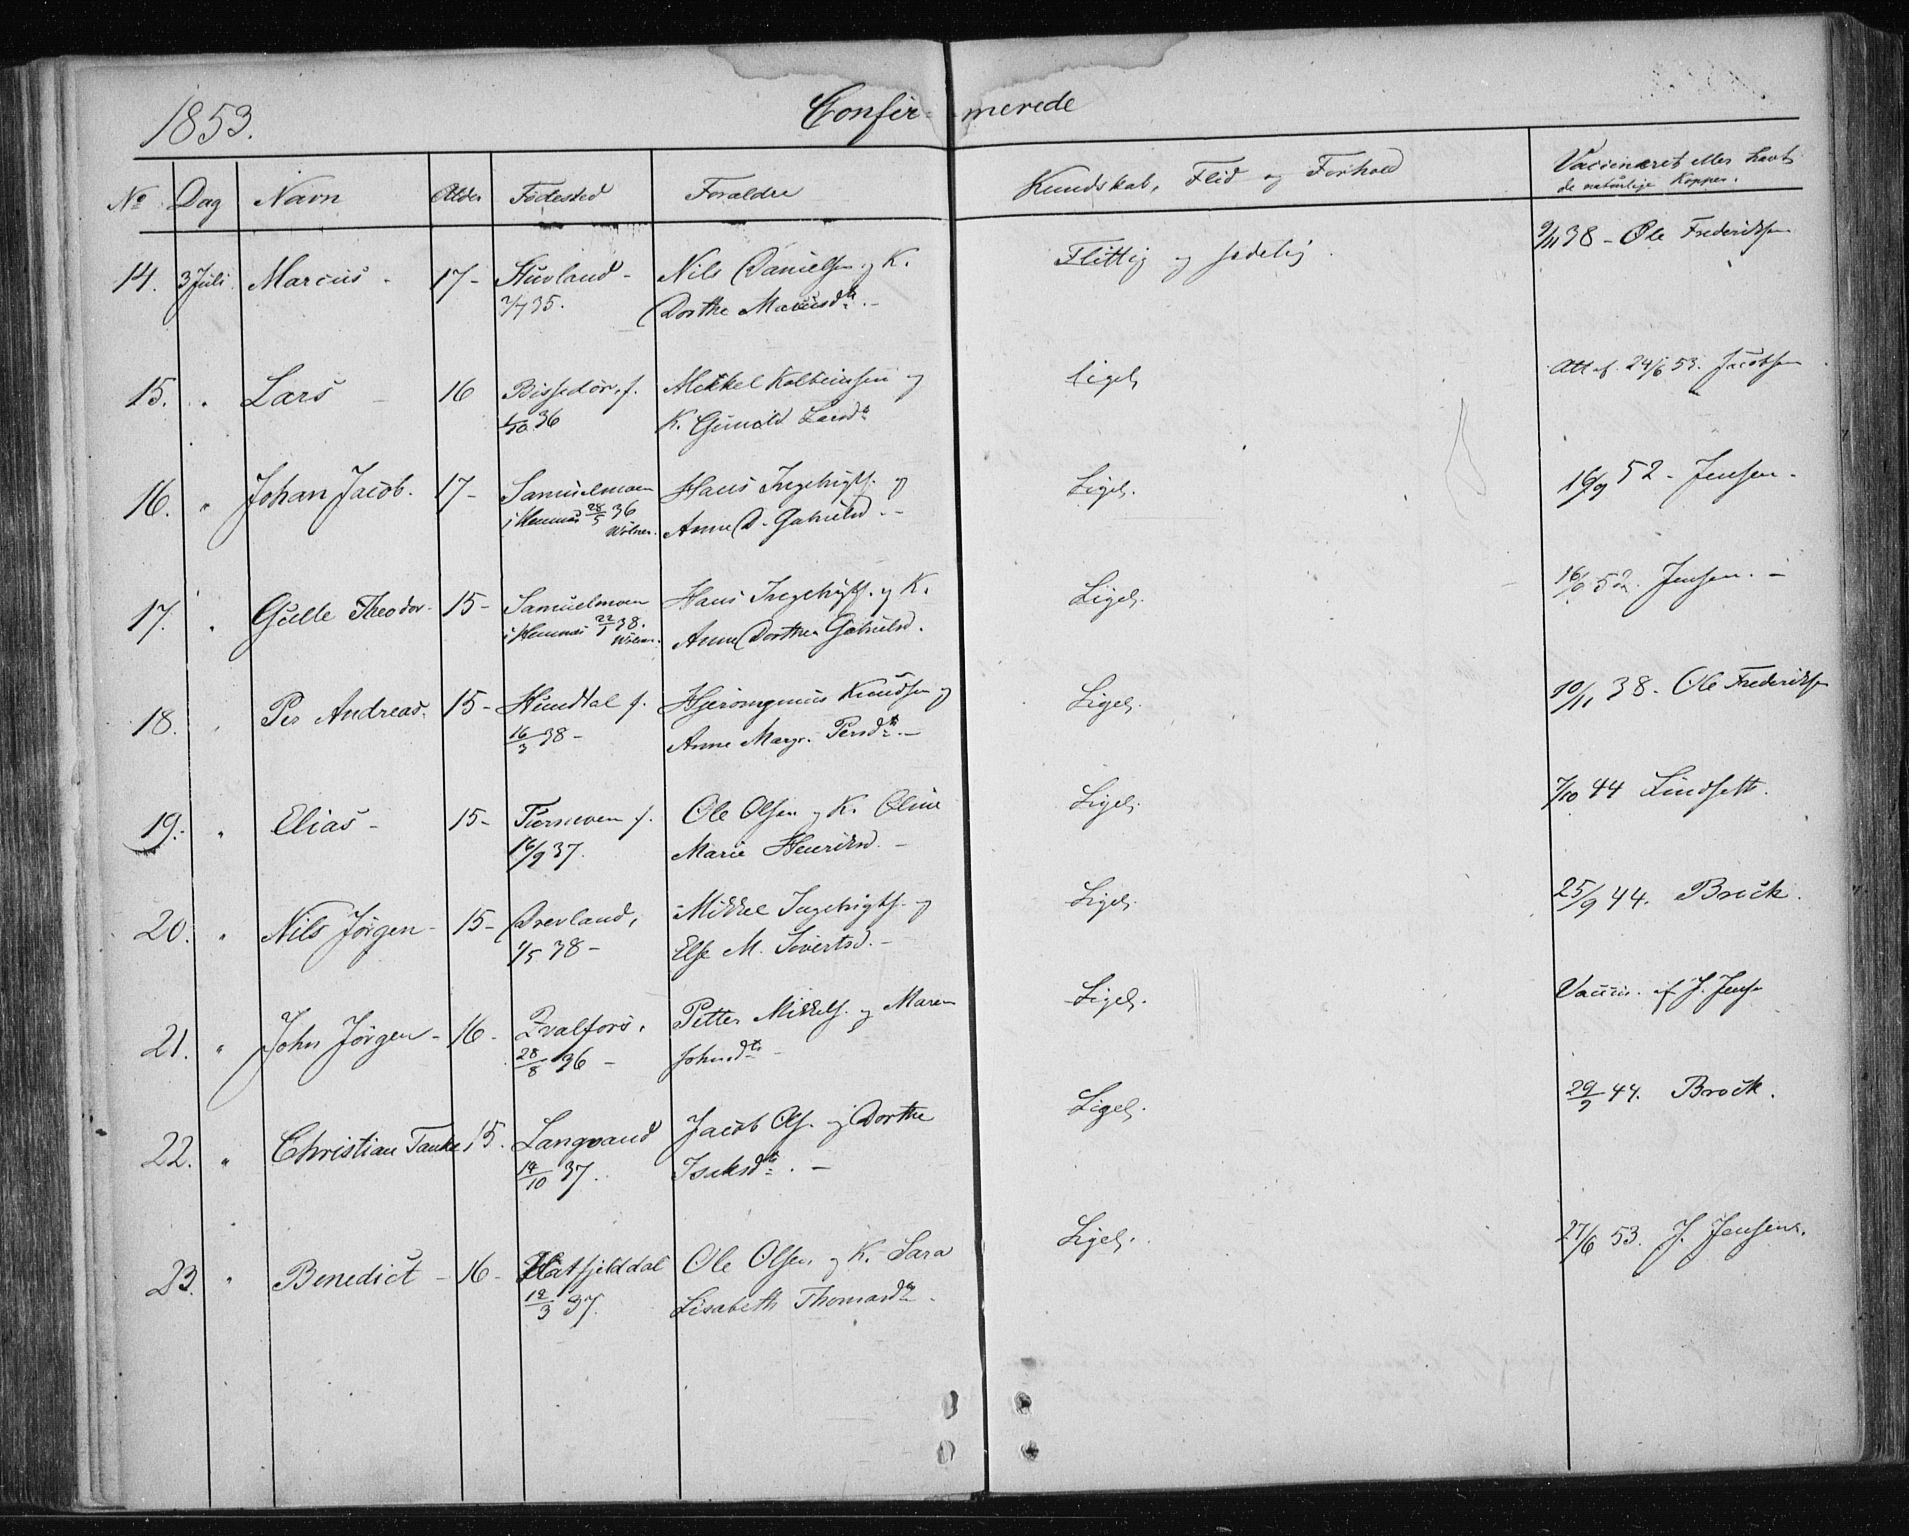 1853.
Confir-merede
No Dag Navn Alder Fødested Forældre Kundskab, Flid og Forhold Vaccineret eller havt
de naturlige Kopper.
14. 3 Juli. Marcus - 17- Stuvland - Nils Danielsen og K. Flittig og sædelig. 9/11 38 - Ole Frederiksen
2/7 35. Dorthe Marcusdtr. -
15. " Lars - 16 Mikkel Kolbeinsen og Ligel. Att af 24/6 53. Jacobsen
36 K. Gunild Larsdr
16. " Johan Jacob. 17- Samuelmoen Hans Ingebrigts. og Ligel. 16/9 52 - Jensen -
i Hemnæs 28/5 36 Anne D. Gabrielsd. -
17. " Gulle Theodor- 15- Samuelmoen Hans Ingebrigts. og K. Ligel. 16/9 52. Jensen. -
i Hemnæs 22/1 38. Anne Dorthea Gabrielsd.
18. " Per Andreas. 15- Hundtal f. Hjeronymus Knudsen og Ligel. 10/11 38 - Ole Frederiksen
16/3 38 - Anne Margr. Persdtr. -
19. " Elias - 15- f. Ole Olsen og K. Oline Ligel. 7/10 44 Lindseth.
16/9 37. Marie Henriksd. -
20. " Nils Jörgen - 15- Drevland, Mikkel Ingebrigts. og Ligel. 25/9 44. Brock.
1/5 38 - Else M. Sivertsd. -
21. " John Jörgen - 16- Petter Mikkels. og Maren Ligel. Vaccin. af J. Jensen
28/8 36 - Johnsdtr -
22. " Christian Tanke 15. Langvand Jacob Ols. og Dorthe Ligel. 29/9 44. Brock.
14/10 37. Isaksdtr. -
23. " Benedict - 16- Hatfjelddal Ole Olsen og K. Sara Ligel. 27/6 53. J. Jensen.
12/3 37. Lisabeth Thomasdr.